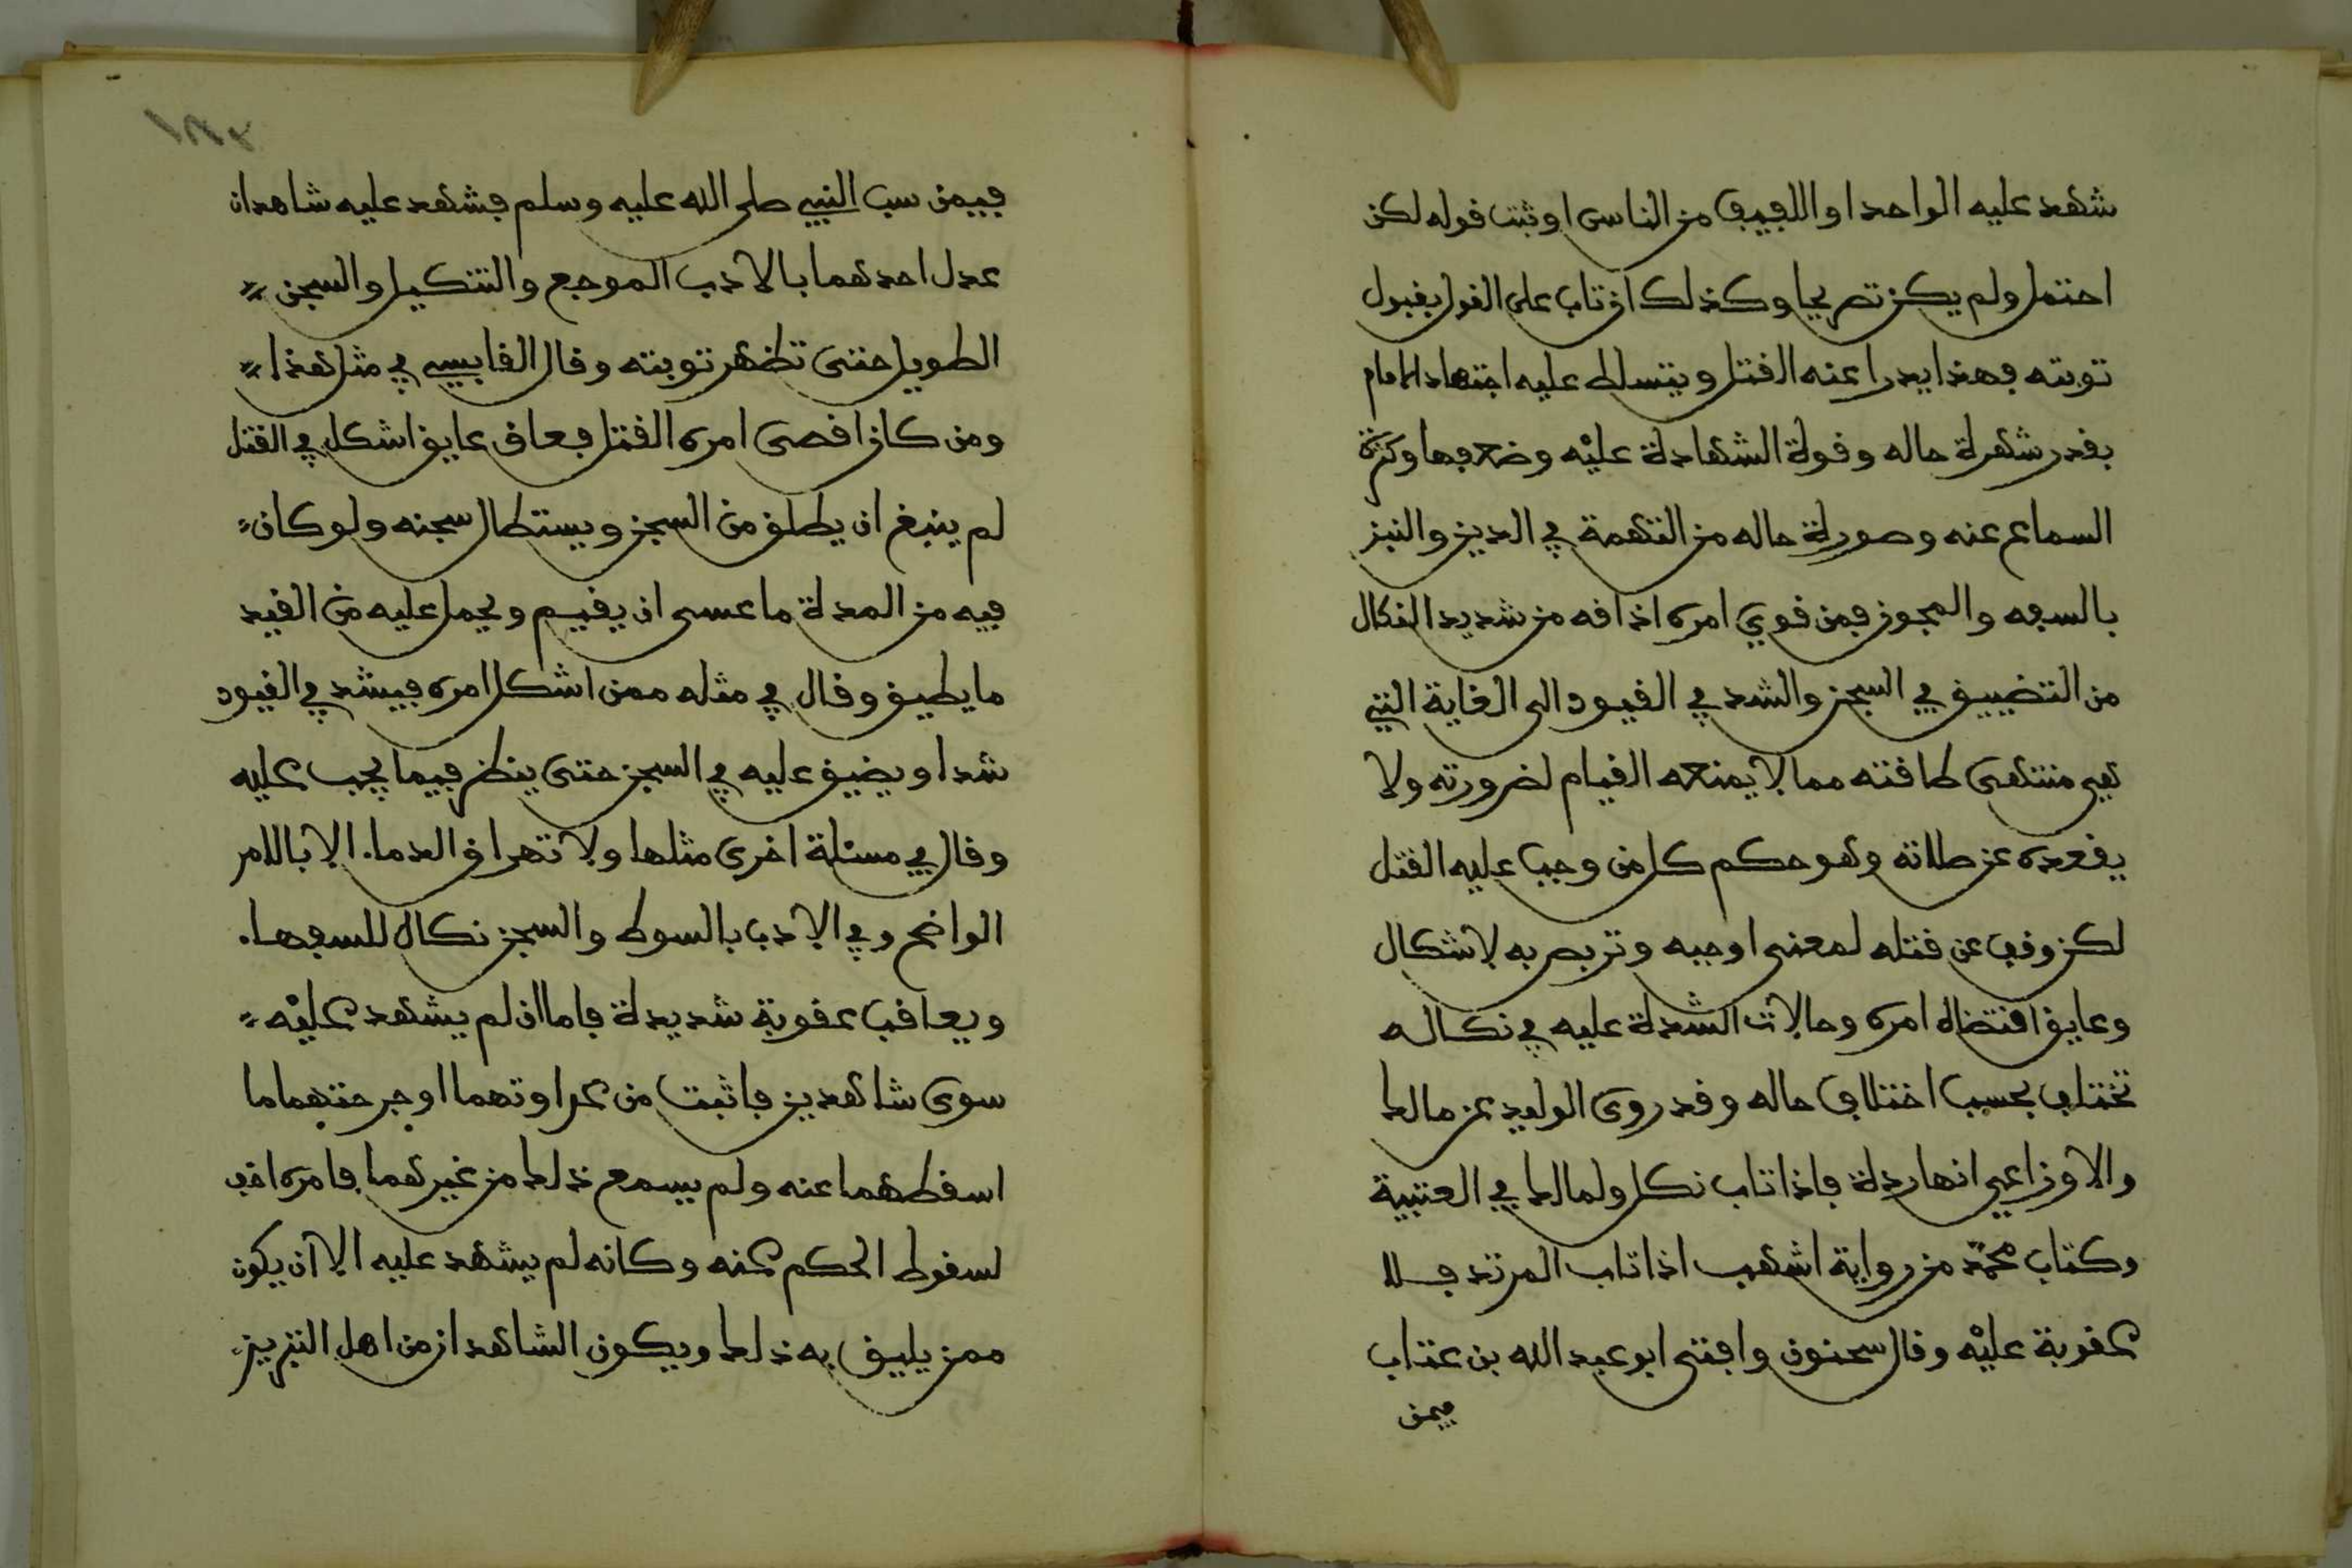 شهد عليه الواحد او اللفيف من الناس او ثبت قوله لكن
احتمل ولم يكن تصريحا وكذلك ان تاب على القول بقبول
توبته فهذا يدرا عنه القتل ويتسلط عليه اجتهاد الامام
بقدر شهرة حاله وقوة الشهادة عليه وضعفها وكثرة
السماع عنه وصورة حاله من التهمة في الدين والنبز
بالسفه والمجون فمن قوي امره اذاقه من شديد النكال
من التضييق في السجن والشد في القيود الى الغاية التي
هي منتهى طاقته مما لا يمنعه القيام لضرورته ولا
يقعده عن صلاته وهو حكم كل من وجب عليه القتل
لكن وقف عن قتله لمعنى اوجبه وتربص به لاشكال
وعايق اقتضاه امره وحالات الشدة عليه في نكاله
تختلف بحسب اختلاف حاله وقد روى الوليد عن مالك
والاوزاعي انها ردة فاذا تاب نكل ولمالك في العتبية
وكتاب محمد من رواية اشهب اذا تاب المرتد فلا
عقوبة عليه وقال سحنون وافتى ابو عبد الله بن عتاب
فيمن
فيمن سب النبي صلى الله عليه وسلم فشهد عليه شاهدان
عدل احدهما بالادب الموجع والتنكيل والسجن
الطويل حتى تظهر توبته وقال القابسي في مثل هذا
ومن كان اقصى امره القتل فعاق عايق اشكل في القتل
لم ينبغ ان يطلق من السجن ويستطال سجنه ولو كان
فيه من المدة ما عسى ان يقيم ويحمل عليه من القيد
ما يطيق وقال في مثله ممن اشكل امره فيشد في القيود
شدا ويضيق عليه في السجن حتى ينظر فيما يجب عليه
وقال في مسئلة اخرى مثلها ولا تهراق الدما. الا بالامر
الواضح وفي الادب بالسوط والسجن نكال للسفها.
ويعاقب عقوبة شديدة فاما ان لم يشهد عليه
سوى شاهدين فاثبت من عداوتهما او جرحتهما ما
اسقطهما عنه ولم يسمع ذلك من غيرهما فامره اخف
لسقوط الحكم عنه وكانه لم يشهد عليه الا ان يكون
ممن يليق به ذلك ويكون الشاهدان من اهل التبريز